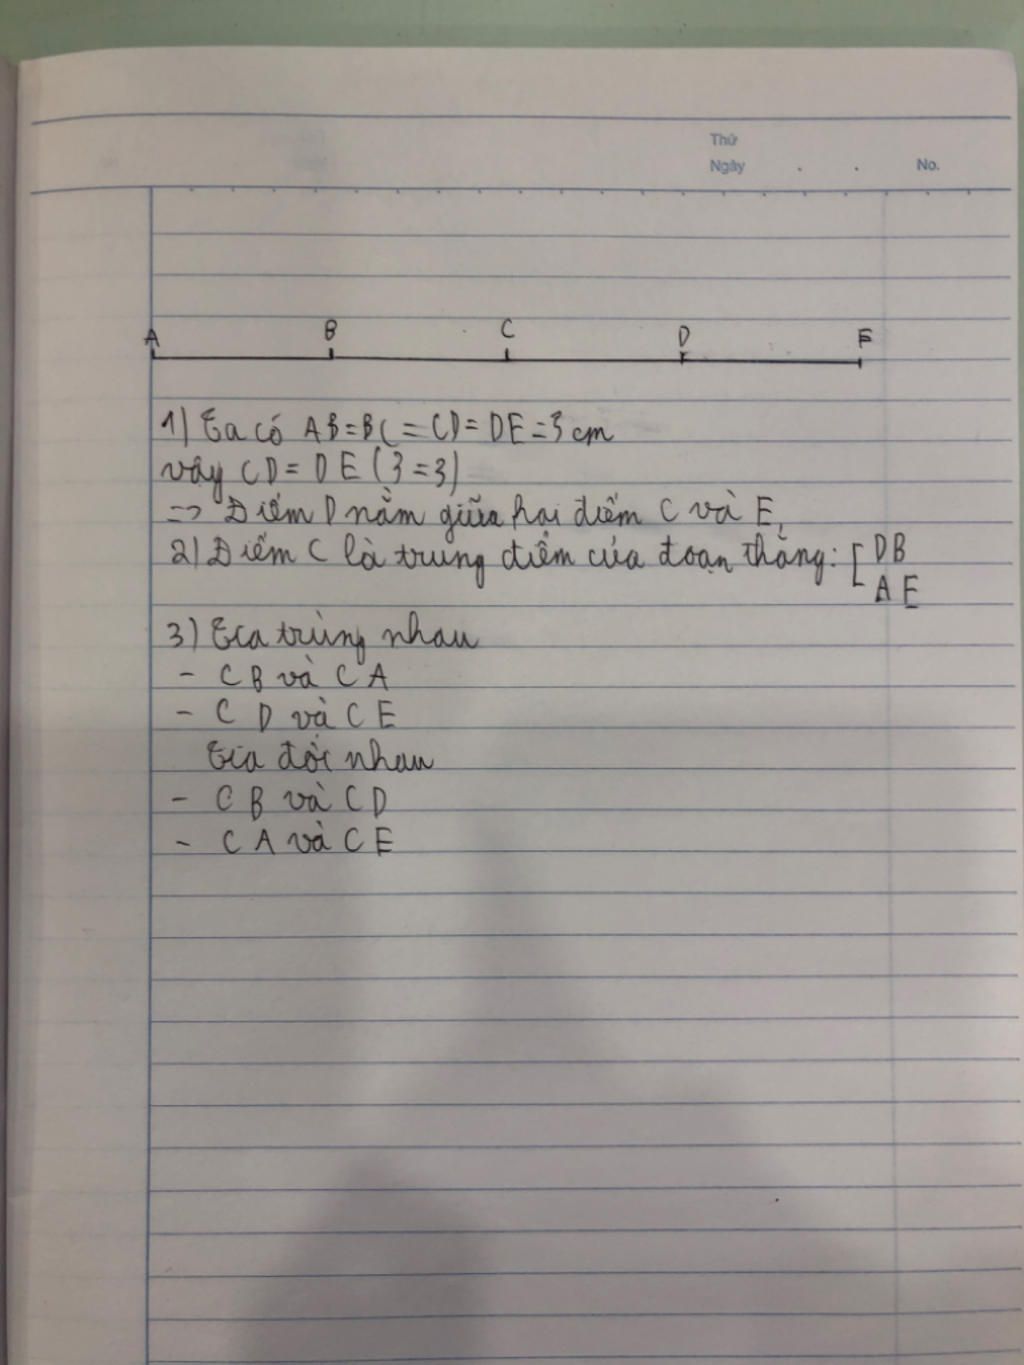 Thứ
Ngày . . No.
A B C D E
1) Ta có AB=BC=CD=DE=3cm
vậy CD=DE(3=3)
=> Điểm D nằm giữa hai điểm C và E,
2) Điểm C là trung điểm của đoạn thẳng: [ DB
AE
3) Tia trùng nhau
- CB và CA
- CD và CE
Tia đối nhau
- CB và CD
- CA và CE